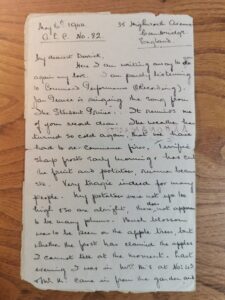 May 6th 1940 35 Highmoor Avenue
A.E.C. No. 82. Cambridge
England
My dearest Derrick,
Here I am writing away to you
again my love. I am partly listening
to Command Performance (Recording).
Jan Peerce is singing the song from
The Student Prince. It reminds me
of your dream dear. The weather has
turned so cold again that we have
had to re-commence fires. Terrific
sharp frosts early mornings has cut
the fruit and potatoes, runner beans
etc. Very tragic indeed for many
people. My potatoes were not up too
high so are alright. There does not appear
to be many plums. Much blossom
was to be seen on the apple trees but
whether the frost has claimed the apples
I cannot tell at the moment. Last
evening I was in
came in from the garden and